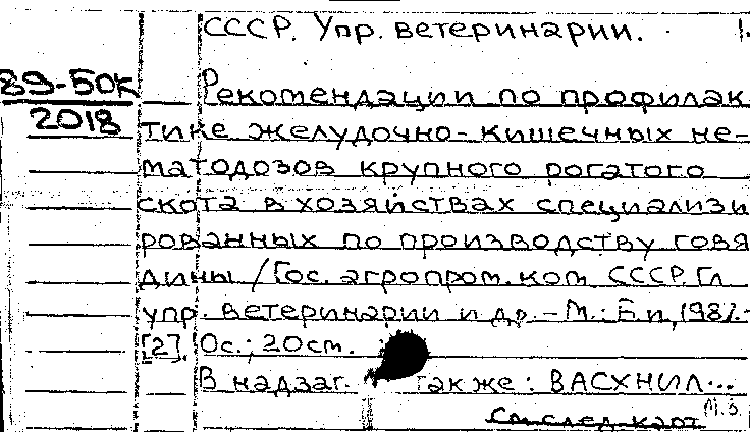 СССР. Упр. ветеринарии. 1.
89-50К
2018
Рекомендации по профилак
тике желудочно-кишечных не-
матодозов крупного рогатого
скота в хозяйствах специализи
рованных по производству говя
дины / Гос. агропром. ком СССР. Гл
упр. ветеринарии и др. - М.: Б.и, 1987.-
[2], 0с.; 20см.
В надзаг. также: ВАСХНИЛ...
См след. карт М.З.